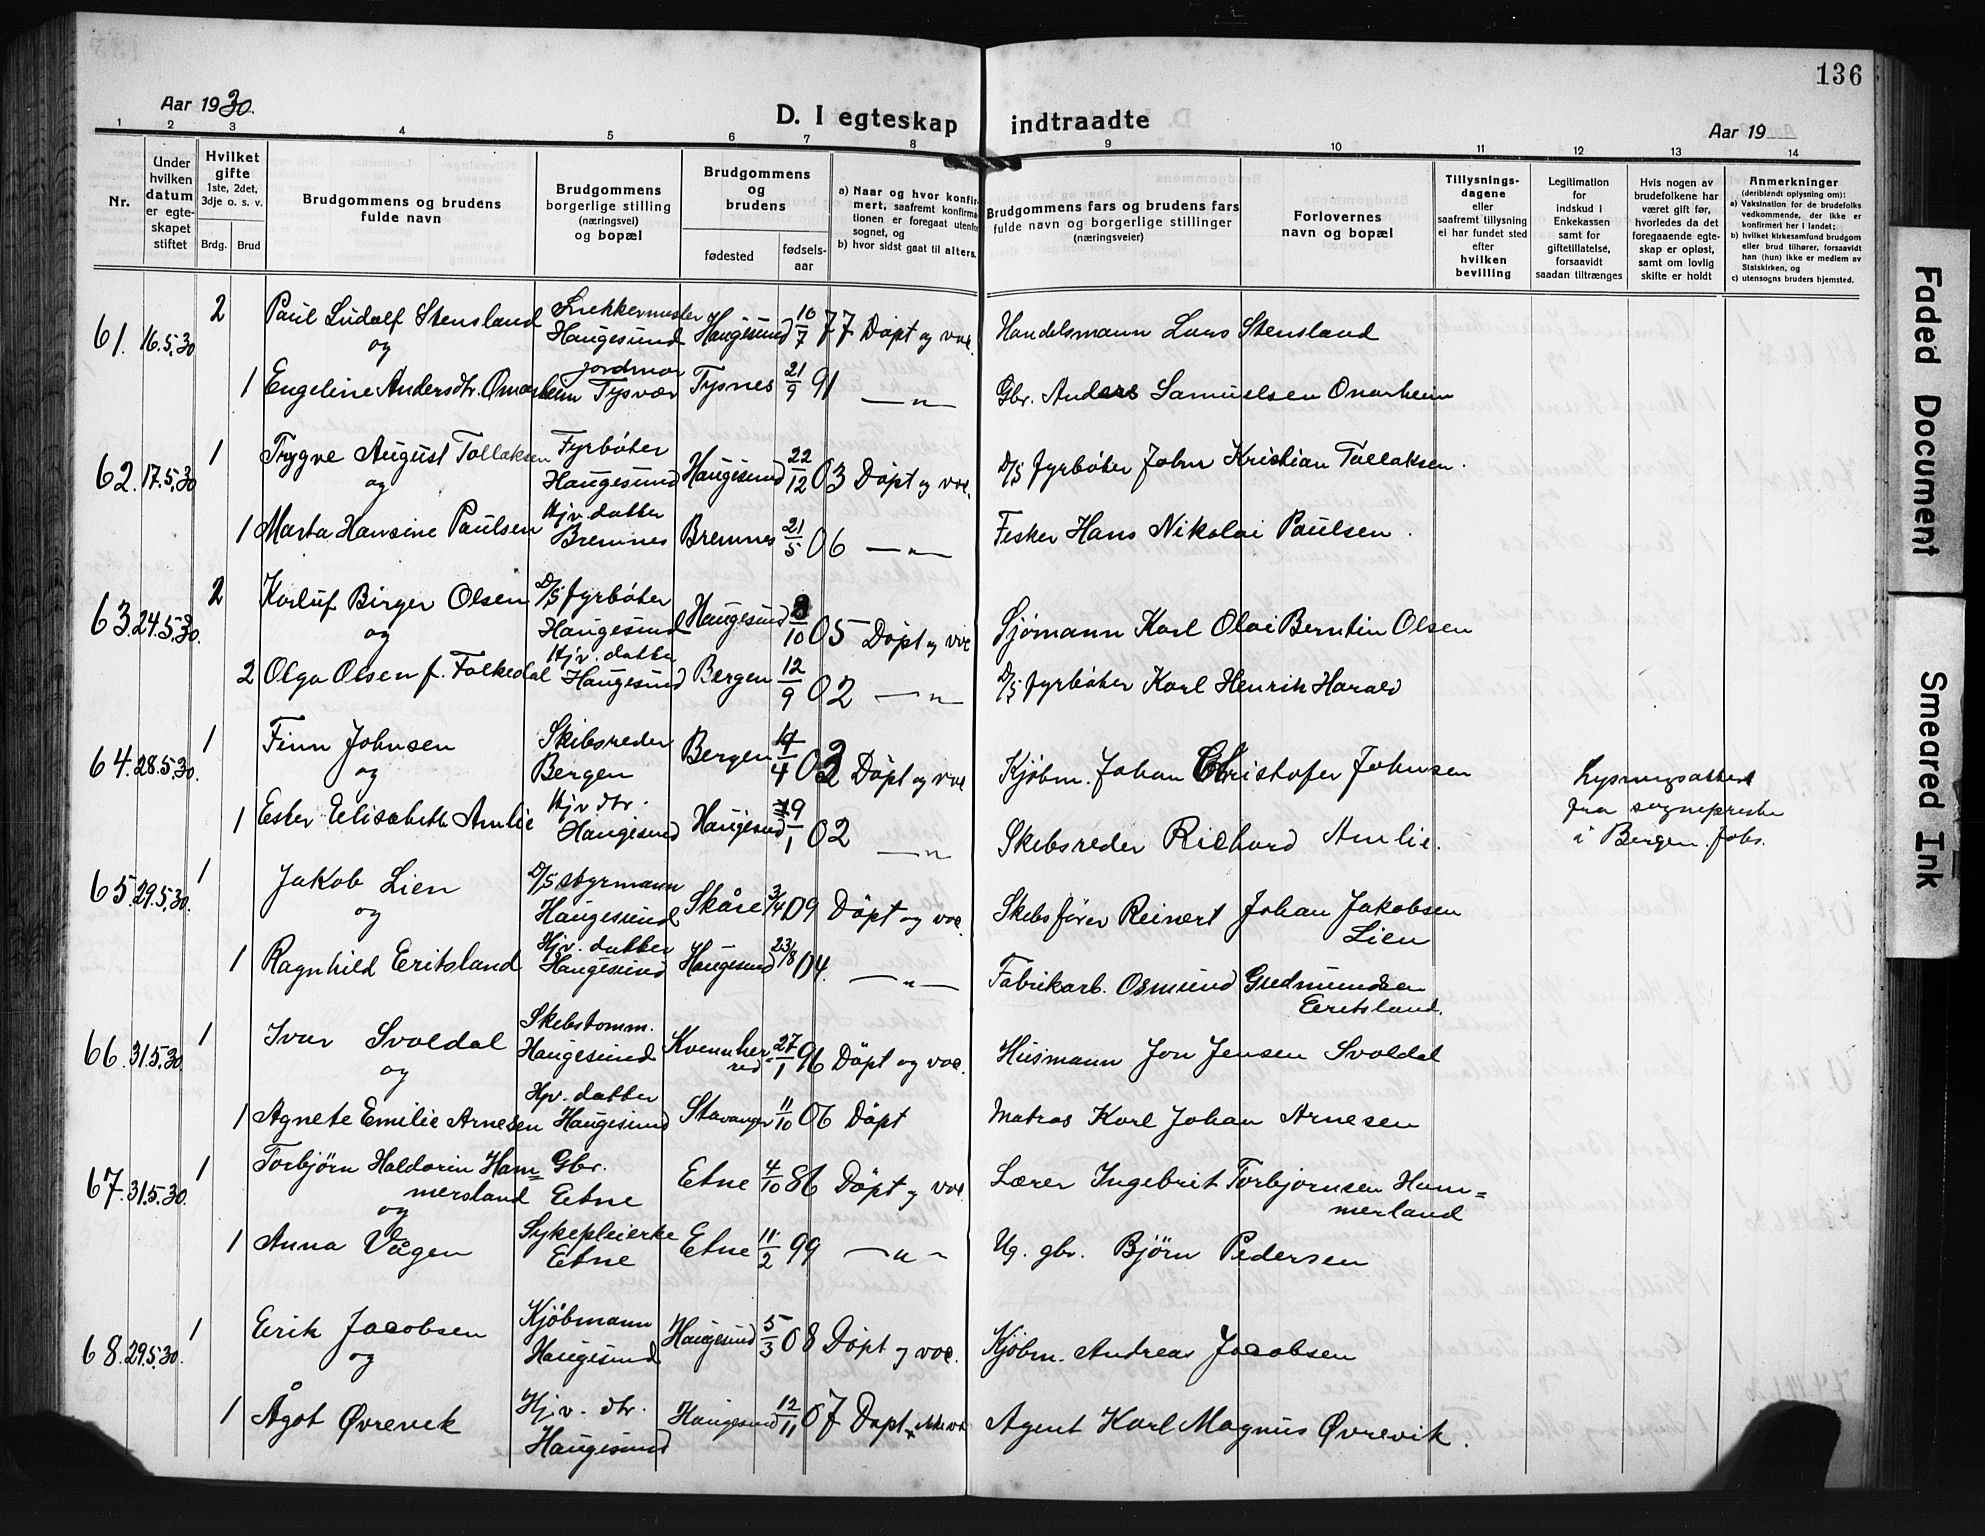 136
Aar 1930.
D. I egteskap indtraadte
Aar 19
1 2 3 4 5 6 7 8 9 10 11 12 13 14
Nr.
Under hvilken datum er egteskapet stiftet
Hvilket gifte 1ste, 2det, 3dje o. s. v.
Brdg. Brud
Brudgommens og brudens fulde navn
Brudgommens borgerlige stilling (næringsvei) og bopæl
Brudgommens og brudens
fødested
fødselsaar
a) Naar og hvor konfirmert, saafremt konfirmationen er foregaat utenfor sognet, og
b) hvor sidst gaat til alters.
Brudgommens fars og brudens fars fulde navn og borgerlige stillinger (næringsveier)
Forlovernes navn og bopæl
Tillysningsdagene eller saafremt tillysning ei har fundet sted efter hvilken bevilling
Legitimation for indskud i Enkekassen samt for giftetillatelse, forsaavidt saadan tiltrænges
Hvis nogen av brudefolkene har været gift før, hvorledes da det foregaaende egteskap er opløst, samt om lovlig skifte er holdt
Anmerkninger (deriblandt oplysning om): a) Vaksination for de brudefolks vedkommende, der ikke er konfirmert her i landet; b) hvilket kirkesamfund brudgom eller brud tilhører, forsaavidt han (hun) ikke er medlem av Statskirken, og c) utensogns bruders hjemsted.
61. 16.5.30 2 Paul Ludolf Stensland og Snekkermester Haugesund Haugesund 10/7 77 Döpt og vac. Handelsmann Lars Stensland
1 Engeline Andersdtr. Omarheim jordmor Tysvær Tysnes 21/9 91 —"— Gbr. Anders Samuelsen Onarheim
62. 17.5.30 1 Trygve August Tollaksen og Fyrbøter Haugesund Haugesund 22/12 03 Döpt og vac. D/S fyrbøter John Kristian Tollaksen.
1 Marta Hansine Paulsen Hjv. datter Bremnes Bremnes 21/5 06 —"— Fisker Hans Nikolai Paulsen.
63. 24.5.30. 2 Korluf Birger Olsen og D/S fyrbøter Haugesund Haugesund 8/10 05 Döpt og vac Sjømann Karl Olai Berntin Olsen
2 Olga Olsen f. Falkedal Hjv. datter Haugesund Bergen 12/9 02 —"— D/S fyrbøter Karl Henrik Harald
64. 28.5.30. 1 Finn Johnsen og Skibsreder Bergen Bergen 14/4 02 Döpt og vac Kjöbm. Johan Christofer Johnsen
Lysningsattest fra sogneprester i Bergen. Johs.
1 Ester Elisabeth Amlie Hjv dtr. Haugesund Haugesund 19/1 02 —"— Skibsreder Richard Amlie.
65. 29.5.30. 1 Jakob Lien og D/S styrmann Haugesund Skåre 3/4 09 Döpt og vac. Skibsfører Reinert Johan Jakobsen Lien
1 Ragnhild Eritsland Hjv. datter Haugesund Haugesund 23/8 04. —"— Fabrikarb. Osmund Gudmundsen Eritsland.
66. 31.5.30 1 Ivar Svoldal og Skibstømm. Haugesund Kvennherred 27/1 96 Döpt og vac. Husmann Jon Jensen Svoldal
1 Agnete Emilie Arnesen Hjv. datter Haugesund Stavanger 11/10 06 Döpt Matros Karl Johan Arnesen
67. 31.5.30. 1 Torbjörn Haldorin Hammersland og Gbr. Etne Etne 4/10 86 Döpt og vac Lærer Ingebrit Torbjørnsen Hammerland
1 Anna Vågen Sykepleierke Etne Etne 11/2 99 —"— Ug. gbr. Bjørn Pedersen
68. 29.5.30. 1 Erik Jacobsen og Kjöbmann Haugesund Haugesund 5/3 08 Döpt og vac. Kjöbm. Andreas Jacobsen
1 Ågot Øvrevik Hjv. dtr. Haugesund Haugesund 12/11 07 Døpt Agent Karl Magnus Øvrevik.
Faded Document
Smeared Ink